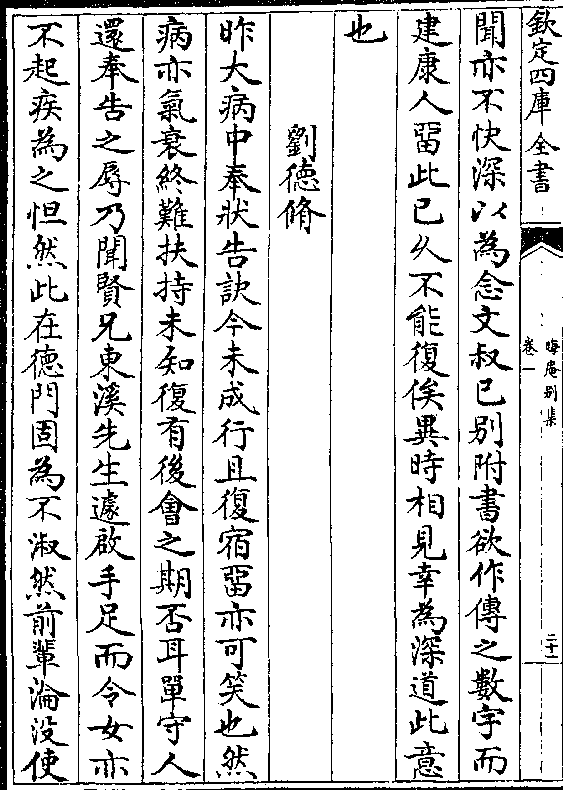 欽定四庫全書
晦庵别集
卷一
二十一
聞亦不快深以為念文叔已别附書欲作傳之數字而
建康人留此已久不能復俟異時相見幸為深道此意
也
劉德脩
昨大病中奉狀告訣今未成行且復宿留亦可笑也然
病亦氣衰終難扶持未知復有後會之期否耳單守人
還奉告之辱乃聞賢兄東溪先生遽啟手足而令女亦
不起疾為之怛然此在德門固為不淑然前輩淪没使